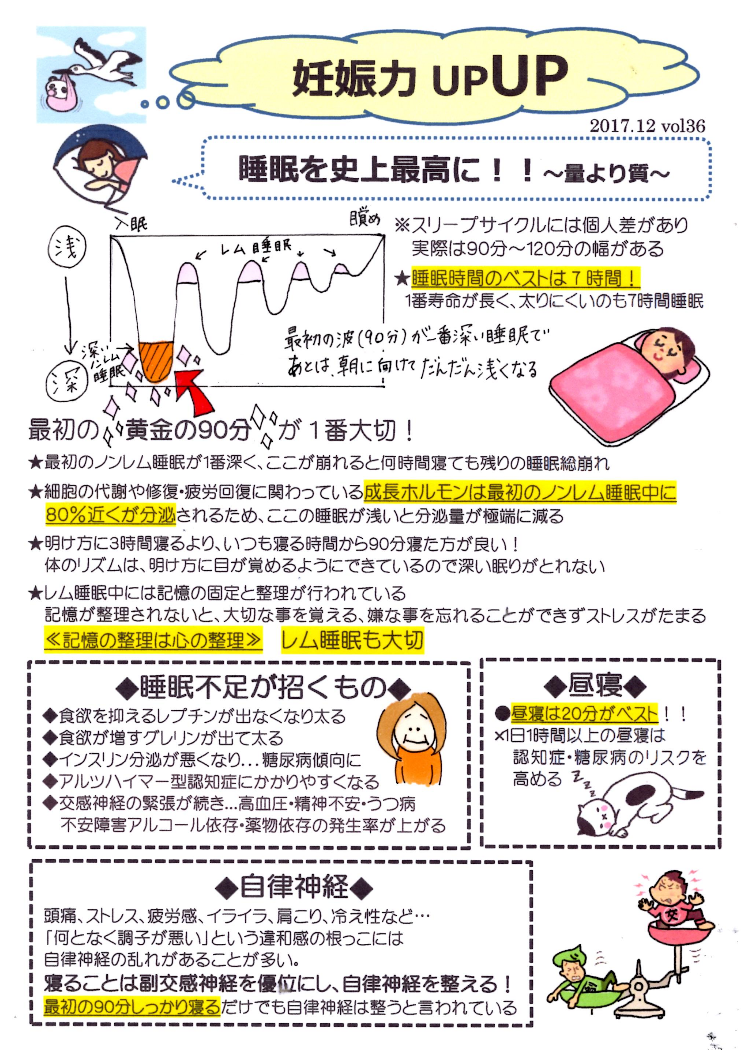 妊娠力 UPUP
2017.12 vol36
睡眠を史上最高に！！～量より質～
入眠
目覚め
浅
レム睡眠
深いノンレム睡眠
深
最初の波(90分)が一番深い睡眠で
あとは、朝に向けてだんだん浅くなる
※スリープサイクルには個人差があり
実際は90分～120分の幅がある
★睡眠時間のベストは７時間！
1番寿命が長く、太りにくいのも7時間睡眠
最初の黄金の90分が１番大切！
★最初のノンレム睡眠が1番深く、ここが崩れると何時間寝ても残りの睡眠総崩れ
★細胞の代謝や修復・疲労回復に関わっている成長ホルモンは最初のノンレム睡眠中に
80％近くが分泌されるため、ここの睡眠が浅いと分泌量が極端に減る
★明け方に3時間寝るより、いつも寝る時間から90分寝た方が良い！
体のリズムは、明け方に目が覚めるようにできているので深い眠りがとれない
★レム睡眠中には記憶の固定と整理が行われている
記憶が整理されないと、大切な事を覚える、嫌な事を忘れることができずストレスがたまる
≪記憶の整理は心の整理≫　レム睡眠も大切
◆睡眠不足が招くもの◆
◆食欲を抑えるレプチンが出なくなり太る
◆食欲が増すグレリンが出て太る
◆インスリン分泌が悪くなり…糖尿病傾向に
◆アルツハイマー型認知症にかかりやすくなる
◆交感神経の緊張が続き…高血圧・精神不安・うつ病
不安障害アルコール依存・薬物依存の発生率が上がる
◆昼寝◆
●昼寝は20分がベスト！！
×1日1時間以上の昼寝は
認知症・糖尿病のリスクを
高める
zzzz
◆自律神経◆
頭痛、ストレス、疲労感、イライラ、肩こり、冷え性など…
「何となく調子が悪い」という違和感の根っこには
自律神経の乱れがあることが多い。
寝ることは副交感神経を優位にし、自律神経を整える！
最初の90分しっかり寝るだけでも自律神経は整うと言われている
交